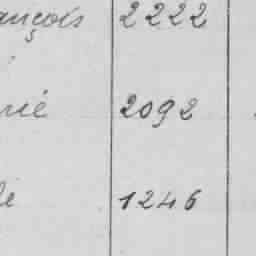 ançois 2222
rié 2092
le 1246